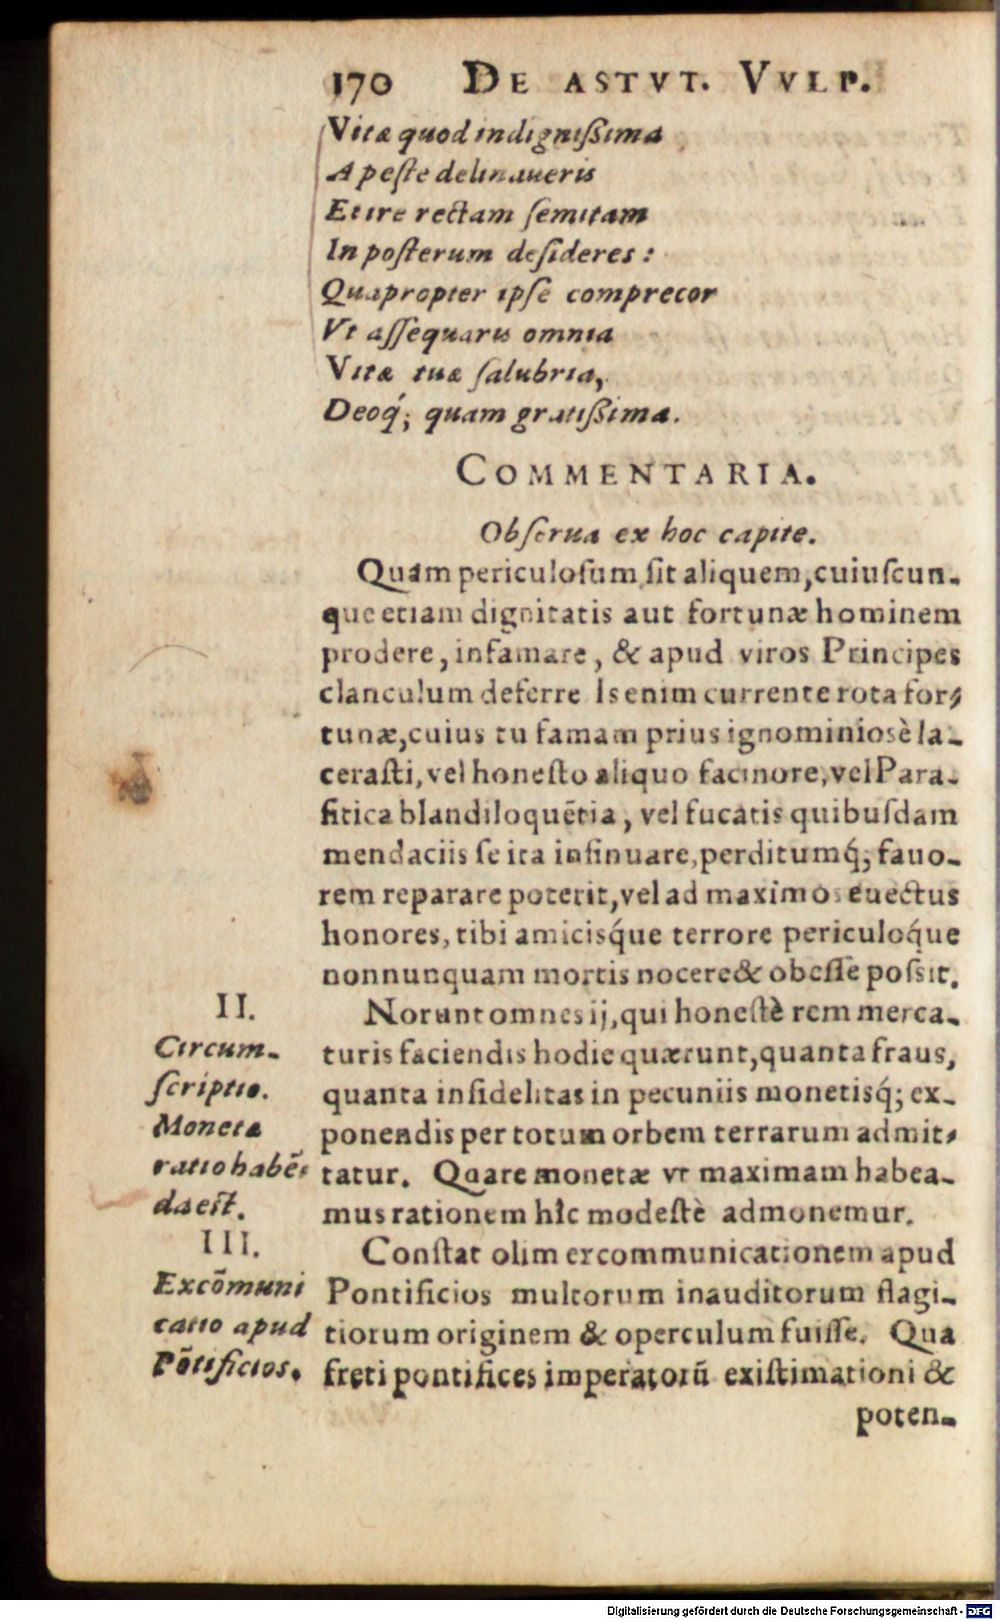 170 DE ASTVT. VVLP.
Vitæ quod indignißima
A peſte delinaueris
Et ire rectam ſemitam
In poſterum deſideres:
Quapropter ipſe comprecor
Vt aſſequaris omnia
Vitæ tuæ ſalubria,
Deoq́; quam gratißima.
COMMENTARIA.
Obſerua ex hoc capite.
Quàm periculoſum ſit aliquem, cuiuſcun-
que etiam dignitatis aut fortunæ hominem
prodere, infamare, & apud viros Principes
clanculum deferre Is enim currente rota for-
tunæ, cuius tu famam prius ignominiosè la-
ceraſti, vel honeſto aliquo facinore, vel Para-
ſitica blandiloquẽtia, vel fucatis quibuſdam
mendaciis ſe ita inſinuare, perditumq́; fauo-
rem reparare poterit, vel ad maximos euectus
honores, tibi amicisq́ue terrore periculoq́ue
nonnunquam mortis nocere & obeſſe poſsit.
II.
Norunt omnes ij, qui honeſtè rem merca-
Circum-
turis faciendis hodie quærunt, quanta fraus,
ſcriptio.
quanta infidelitas in pecuniis monetisq́; ex-
Monetæ
ponendis per totum orbem terrarum admit-
ratio habẽ-
tatur. Quare monetæ vt maximam habea-
da eſt.
mus rationem hîc modeſtè admonemur.
III.
Conſtat olim ercommunicationem apud
Excõmuni
Pontificios multorum inauditorum flagi-
catio apud
tiorum originem & operculum fuiſſe. Qua
Põtificios.
freti pontifices imperatorũ exiſtimationi &
poten-
Digitalisierung gefördert durch die Deutsche Forschungsgemeinschaft - DFG